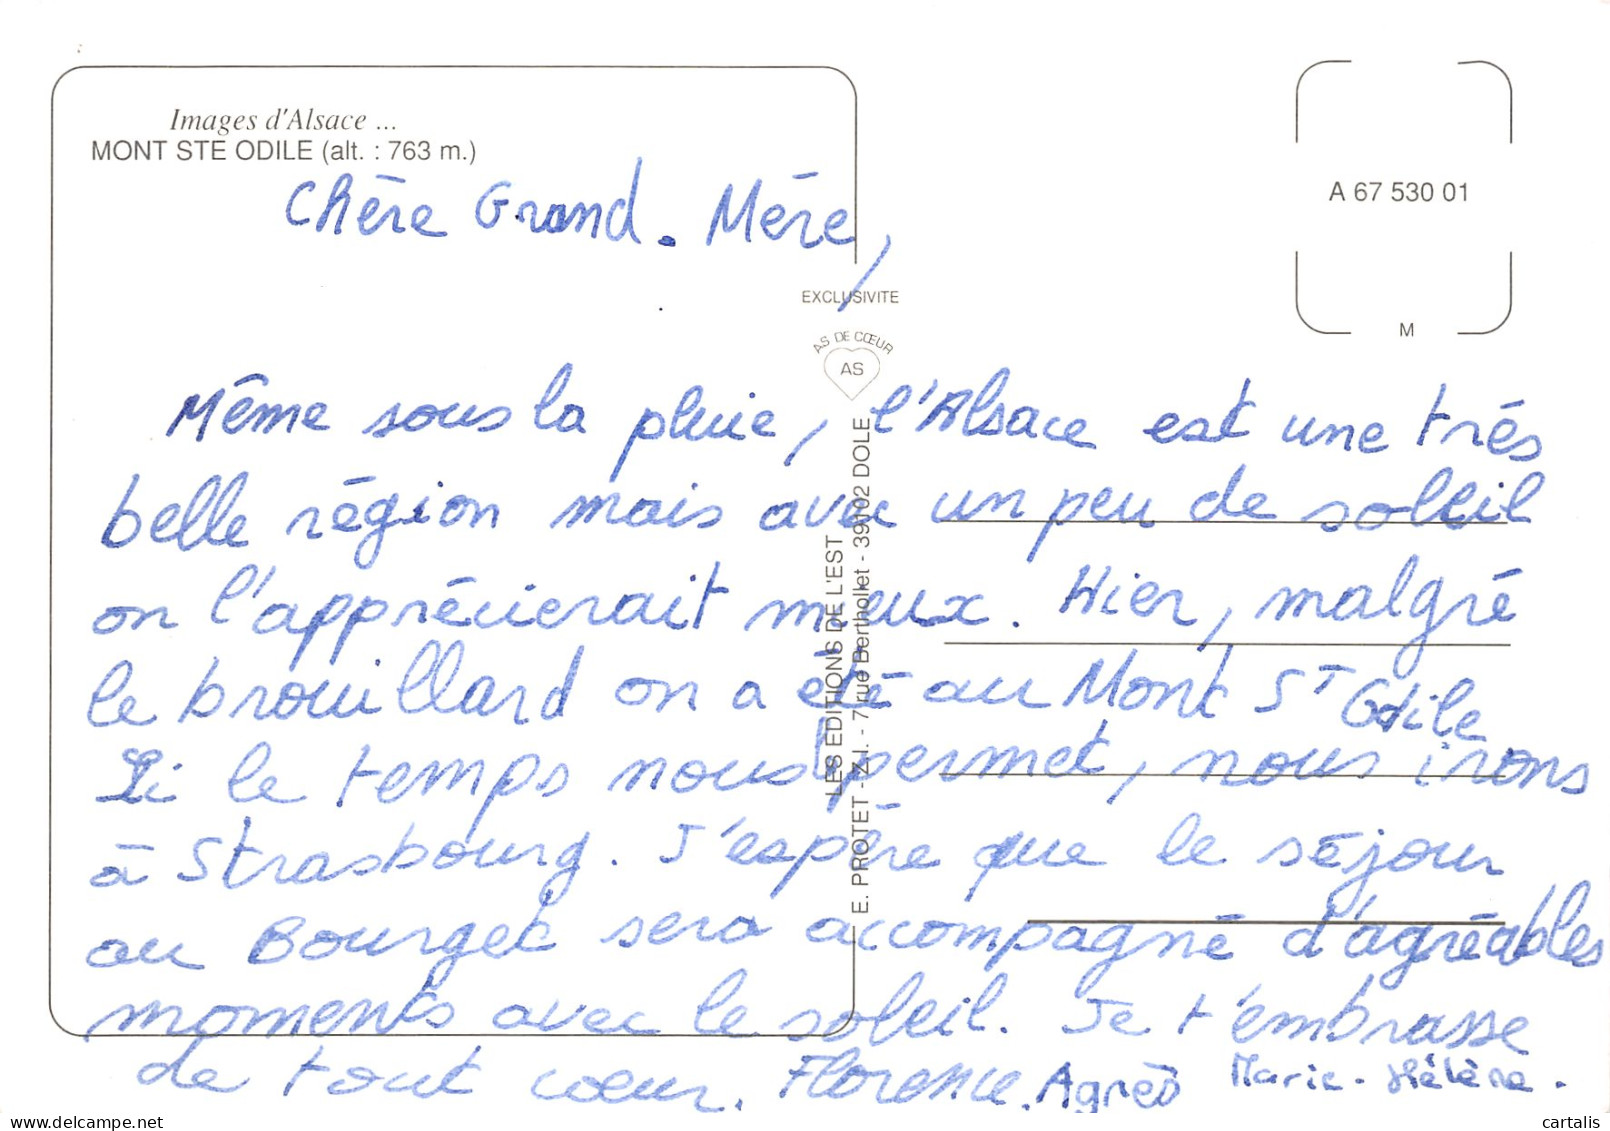 Images d'Alsace ...
MONT STE ODILE (alt. : 763 m.)
A 67 530 01
M
EXCLUSIVITE
AS DE CŒUR
AS
LES EDITIONS DE L'EST
E. PROTET - Z.I. - 7 rue Berthollet - 39102 DOLE
Chère Grand-Mère,
Même sous la pluie, l'Alsace est une très
belle région mais avec un peu de soleil
on l'apprécierait mieux. Hier, malgré
le brouillard on a été au Mont St Odile
Si le temps nous permet, nous irons
à Strasbourg. J'espère que le séjour
au Bourget sera accompagné d'agréables
moments avec le soleil. Je t'embrasse
de tout cœur. Florence. Agnès Marie-Hélène.
delcampe.net
cartalis